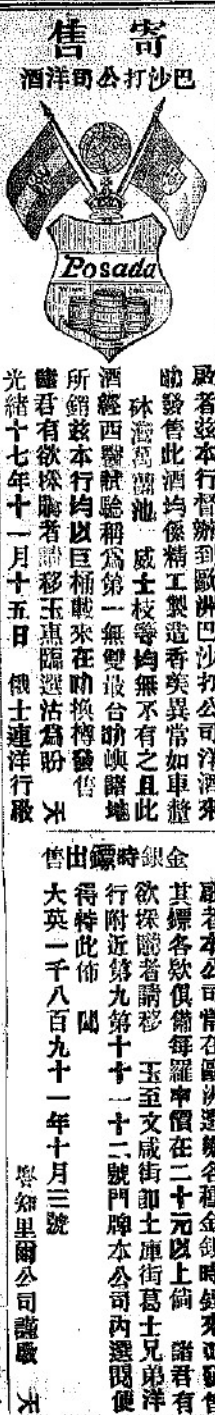 寄售
巴沙打公司洋酒
Posada
啟者茲本行督辦到歐洲巴沙打公司洋酒來
叻發售此酒均係精工製造香美異常如車釐
砵 萬 池 威士枝等均無不有之且此
酒經西醫試驗稱為第一無雙最合叻嶼諸地
所銷茲本行均以巨桶載來在叻換樽發售
諸君有欲採購者請移玉惠臨選沽為盼 天
光緒十七年十一月十五日 俄士連洋行啟
金銀時鏢出售
啟者本公司常在歐洲選辦各種金銀時鏢來 發售
其鏢各欵俱備每羅 價在二十元以上倘 諸君有
欲採購者請移 玉至文咸街即土庫街葛士兄弟洋
行附近第九第十十一十二號門牌本公司內選閱便
得特此佈 聞
大英一千八百九十一年十月三號
知里爾公司謹啟 天